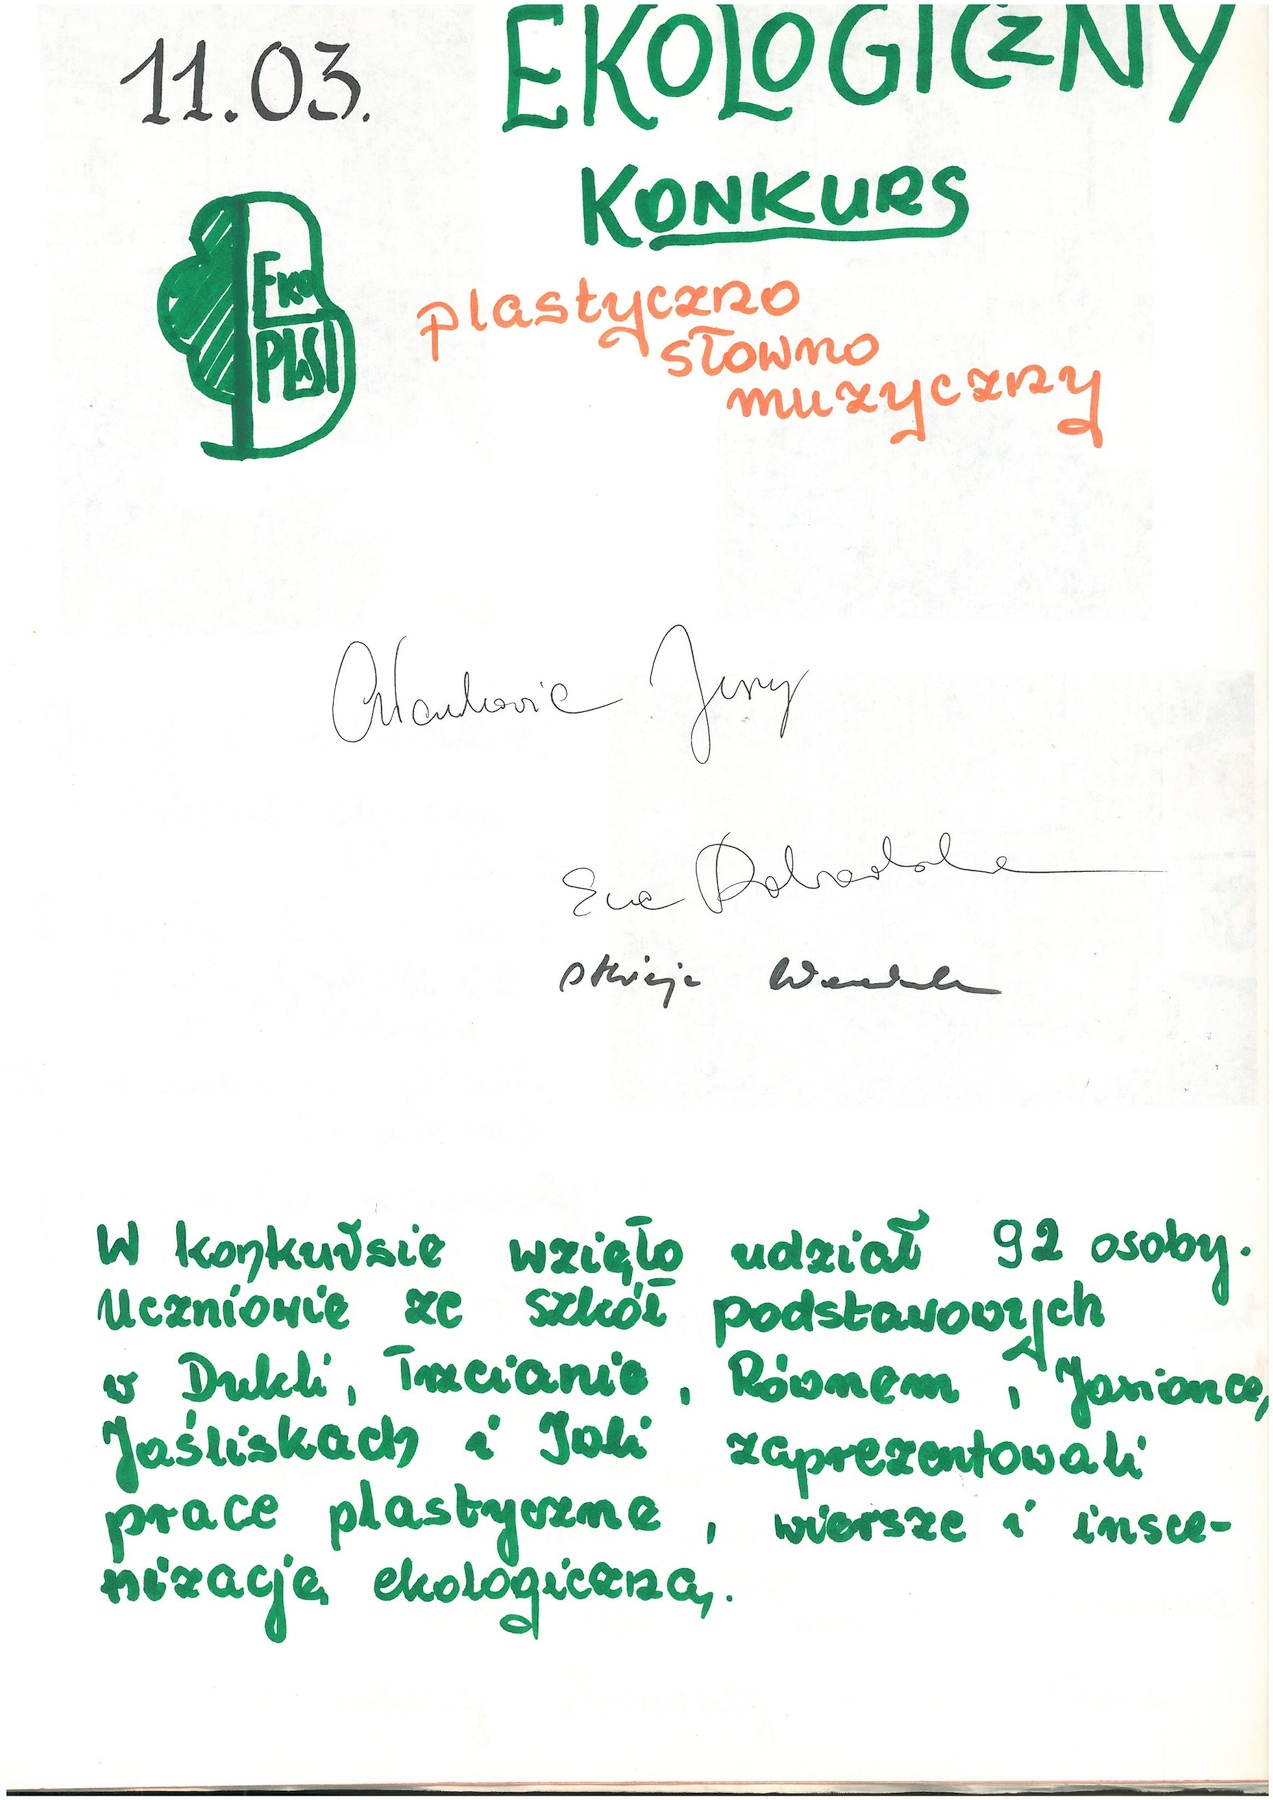 11.03.
EKOLOGICZNY
KONKURS
Eko
PLAST
plastyczno
słowno
muzyczny
Jerzy
Ewa
W konkursie wzięło udział 92 osoby.
Uczniowie ze szkół podstawowych
w Dukli, Trzcianie, Równem, Jasionce,
Jaśliskach i Iwli zaprezentowali
prace plastyczne, wiersze i insce-
nizację ekologiczną.